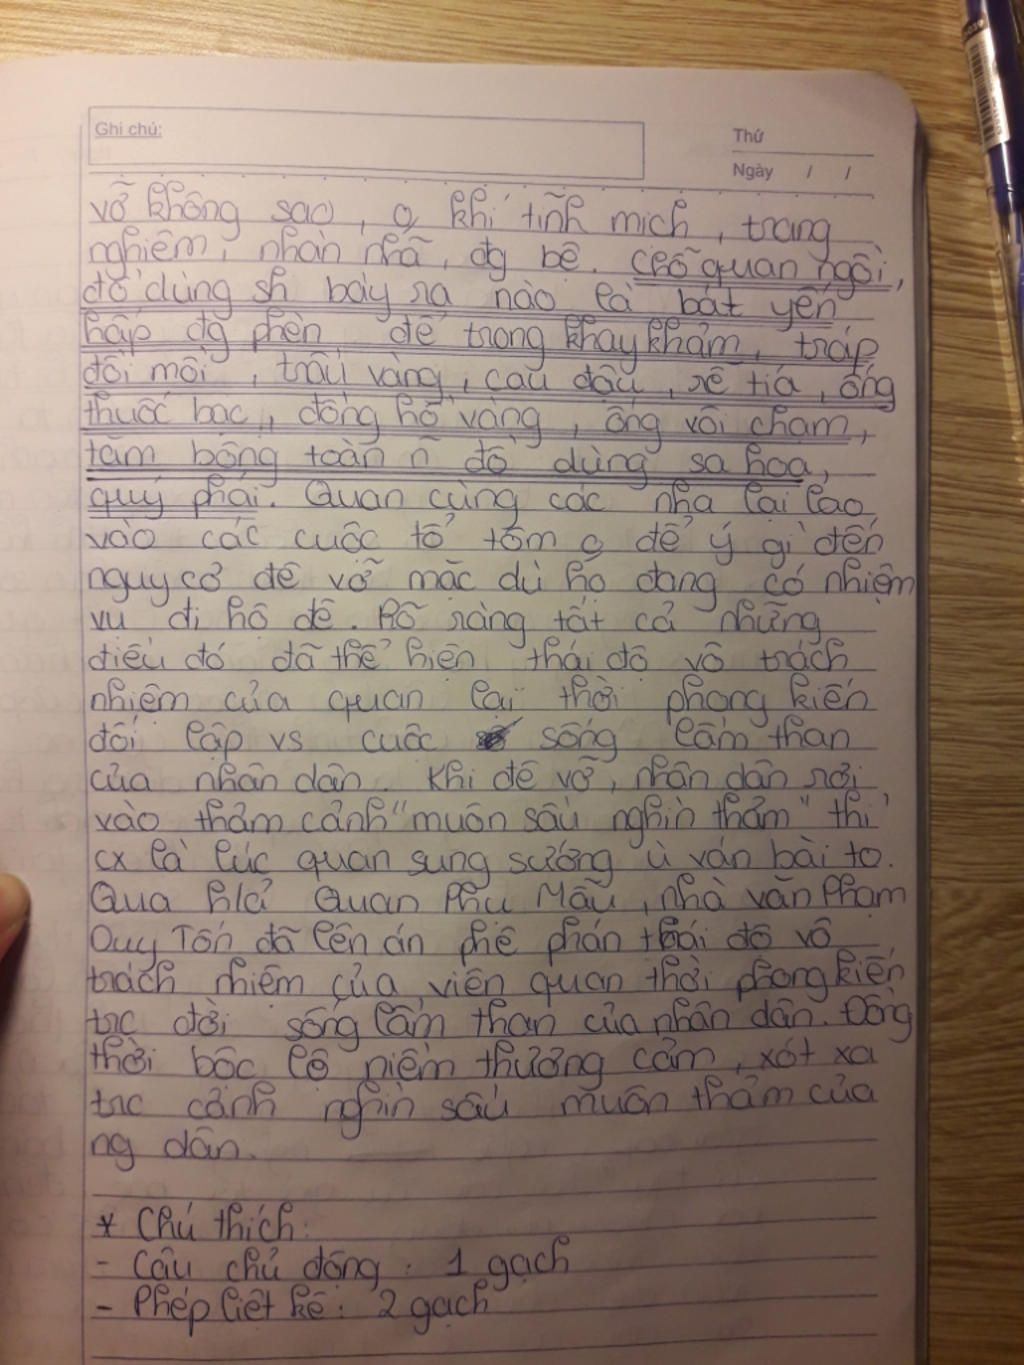 Ghi chú:
Thứ
Ngày / /
vỡ không sao, o khí tĩnh mịch, trang
nghiêm, nhàn nhã, đg bệ. Chỗ quan ngồi,
đồ dùng sh bày ra nào là bát yến
hấp đg phèn, để trong khay khảm, tráp
đồi mồi, trầu vàng, cau đậu, rễ tía, ống
thuốc bạc, đồng hồ vàng, ống vôi chạm,
tăm bông toàn n đồ dùng sa hoa,
quý phái. Quan cùng các nha lại lao
vào các cuộc tổ tôm o để ý gì đến
nguy cơ đê vỡ mặc dù họ đang có nhiệm
vụ đi hộ đê. Rõ ràng tất cả những
điều đó đã thể hiện thái độ vô trách
nhiệm của quan lại thời phong kiến
đối lập vs cuộc sống lầm than
của nhân dân. Khi đê vỡ, nhân dân rơi
vào thảm cảnh "muôn sầu nghìn thảm" thì
cx là lúc quan sung sướng ù ván bài to.
Qua h/ả Quan Phụ Mẫu, nhà văn Phạm
Duy Tốn đã lên án phê phán thái độ vô
trách nhiệm của viên quan thời phong kiến
trc đời sống lầm than của nhân dân. Đồng
thời bộc lộ niềm thương cảm, xót xa
trc cảnh nghìn sầu muôn thảm của
ng dân.
* Chú thích:
- Câu chủ động: 1 gạch
- Phép liệt kê: 2 gạch